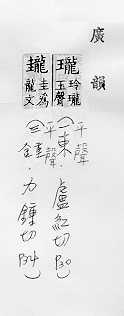 廣韻
瓏 玲瓏玉聲
圭為龍文
(平聲一東.盧紅切P30)
(平聲三鍾.力鍾切P34)